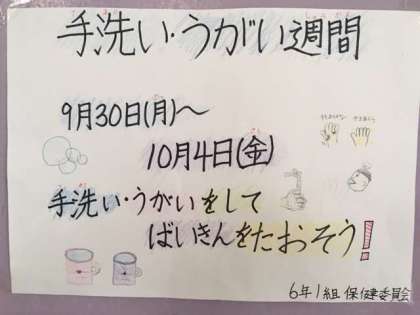 手洗い・うがい週間
9月30日(月)〜
10月4日(金)
手洗い・うがいをして
ばいきんをたおそう!
6年1組 保健委員会